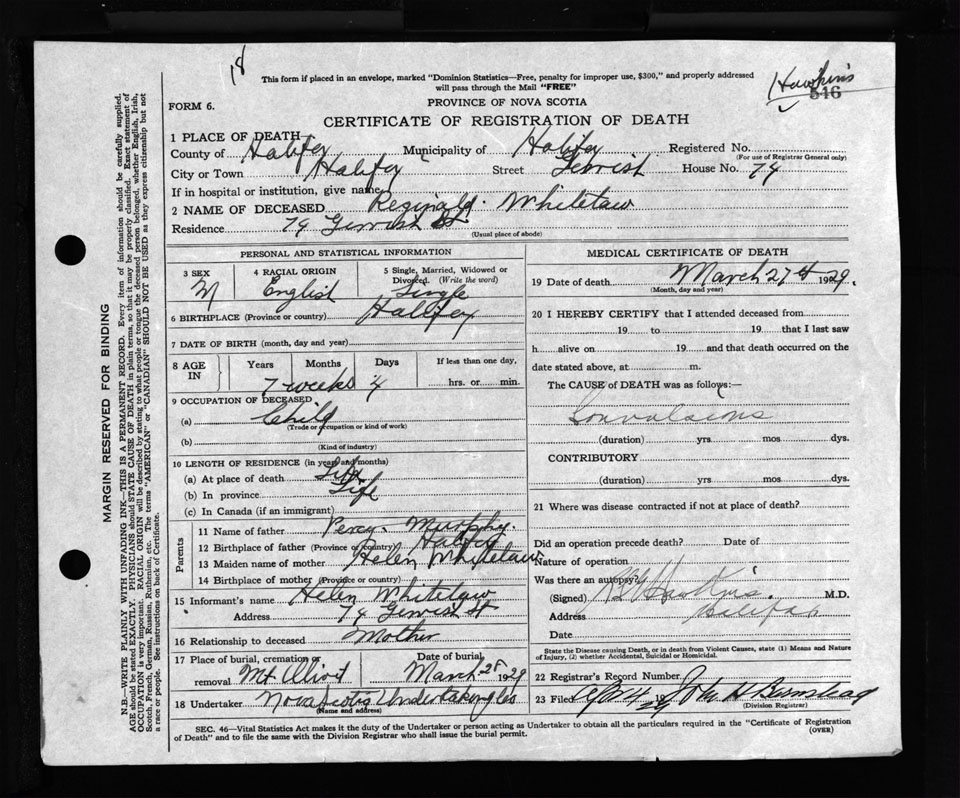 18
This form if placed in an envelope, marked "Dominion Statistics—Free, penalty for improper use, $300," and properly addressed
will pass through the Mail "FREE"
Hawkins
546
FORM 6.
PROVINCE OF NOVA SCOTIA
CERTIFICATE OF REGISTRATION OF DEATH
1 PLACE OF DEATH
County of Halifax Municipality of Halifax Registered No.
(For use of Registrar General only)
City or Town Halifax Street Gerrish House No. 74
If in hospital or institution, give name
2 NAME OF DECEASED Reginald Whitelaw
Residence 74 Gerrish St
(Usual place of abode)
PERSONAL AND STATISTICAL INFORMATION
3 SEX M
4 RACIAL ORIGIN English
5 Single, Married, Widowed or Divorced. (Write the word) Single
6 BIRTHPLACE (Province or country) Halifax
7 DATE OF BIRTH (month, day and year)
8 AGE IN Years Months Days If less than one day,
7 weeks 4 hrs. or min.
9 OCCUPATION OF DECEASED
(a) Child
(Trade or occupation or kind of work)
(b)
(Kind of industry)
10 LENGTH OF RESIDENCE (in years and months)
(a) At place of death Life
(b) In province Life
(c) In Canada (if an immigrant)
Parents
11 Name of father Percy Murphy
12 Birthplace of father (Province or country) Halifax
13 Maiden name of mother Helen Whitelaw
14 Birthplace of mother (Province or country)
15 Informant's name Helen Whitelaw
Address 74 Gerrish St
16 Relationship to deceased Mother
17 Place of burial, cremation or removal Mt Olivet
Date of burial March 28 1929
18 Undertaker Nova Scotia Undertaking Co
(Name and address)
MEDICAL CERTIFICATE OF DEATH
19 Date of death March 27th 1929.
(Month, day and year)
20 I HEREBY CERTIFY that I attended deceased from
19 to 19 that I last saw
h alive on 19 and that death occurred on the
date stated above, at m.
The CAUSE of DEATH was as follows:
Convulsions
(duration) yrs. mos. dys.
CONTRIBUTORY
(duration) yrs. mos. dys.
21 Where was disease contracted if not at place of death?
Did an operation precede death? Date of
Nature of operation
Was there an autopsy?
(Signed) Hawkins M.D.
Address Halifax
Date
State the Disease causing Death, or in death from Violent Causes, state (1) Means and Nature
of Injury, (2) whether Accidental, Suicidal or Homicidal.
22 Registrar's Record Number
23 Filed 19 29 John H
(Division Registrar)
SEC. 46—Vital Statistics Act makes it the duty of the Undertaker or person acting as Undertaker to obtain all the particulars required in the "Certificate of Registration
of Death" and to file the same with the Division Registrar who shall issue the burial permit.
(OVER)
MARGIN RESERVED FOR BINDING
N.B.—WRITE PLAINLY WITH UNFADING INK—THIS IS A PERMANENT RECORD. Every item of information should be carefully supplied.
AGE should be stated EXACTLY. PHYSICIANS should STATE CAUSE OF DEATH in plain terms, so that it may be properly classified. Exact statement of
OCCUPATION is very important. RACIAL ORIGIN will be described by stating to what people or tongue the deceased person belonged, whether English, Irish,
Scotch, French, German, Russian, Ruthenian, etc. The terms "AMERICAN" or "CANADIAN" SHOULD NOT BE USED as they express citizenship but not
a race or people. See instructions on back of Certificate.